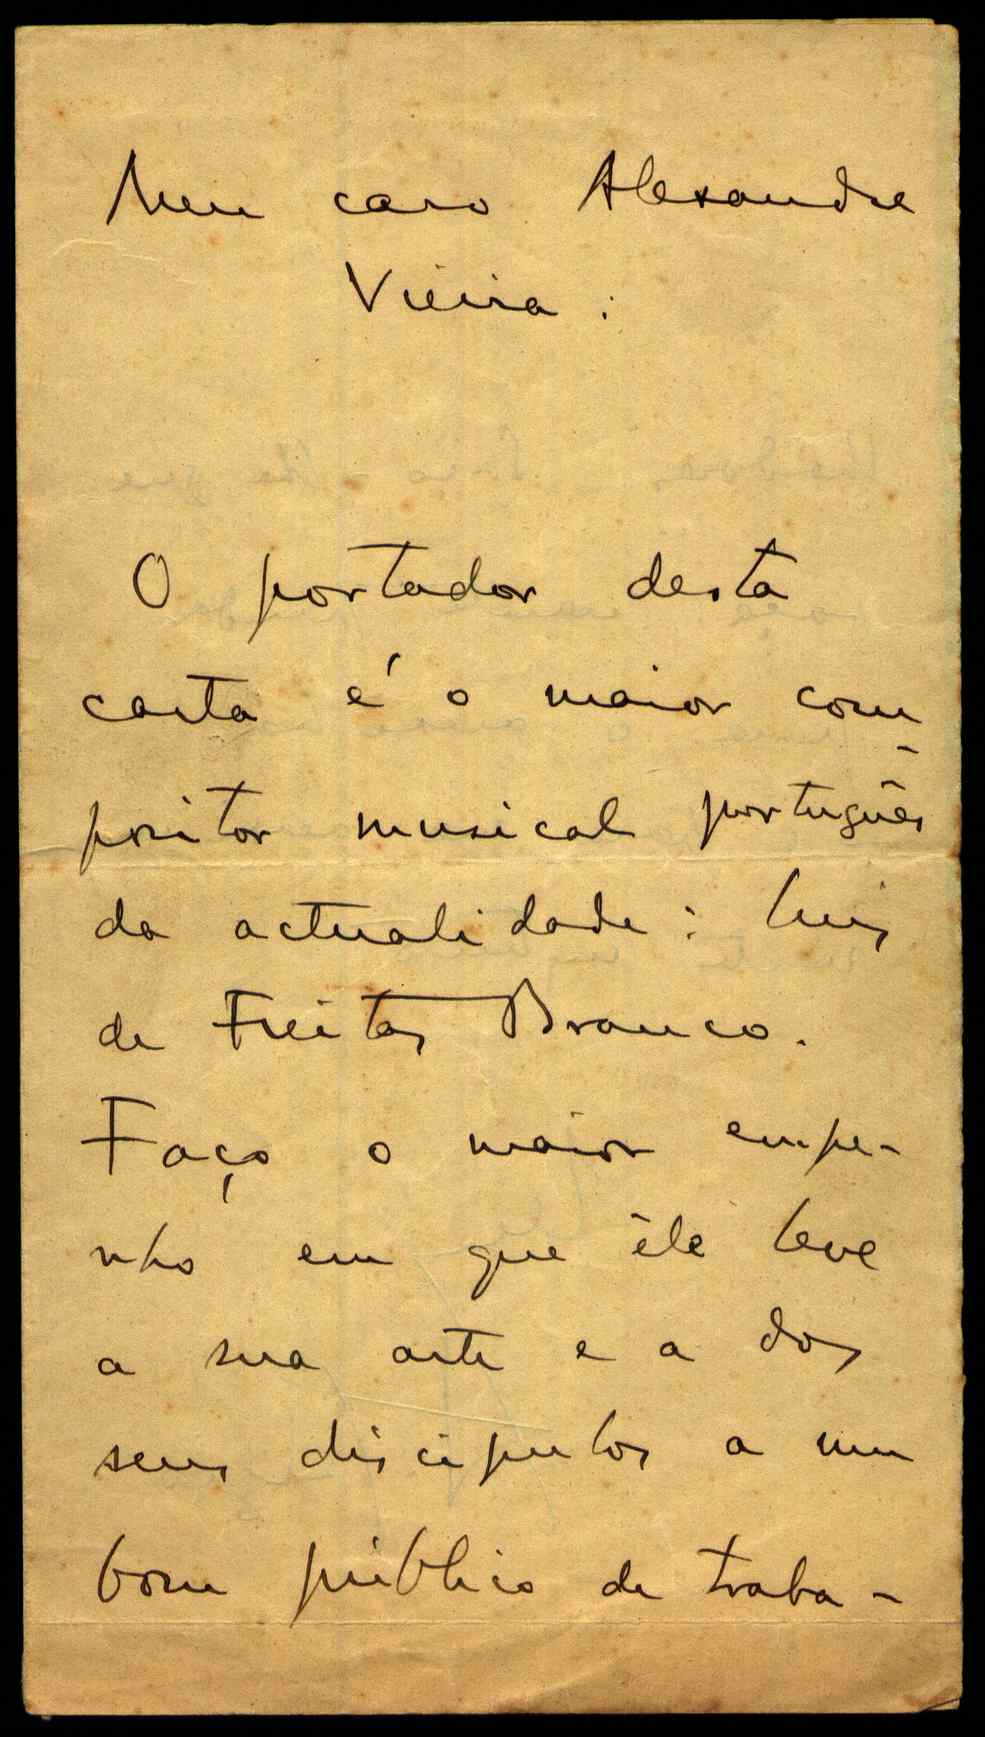 Meu caro Alexandre
Vieira:
O portador desta
carta é o maior com-
positor musical português
da actualidade: Luis
de Freitas Branco.
Faço o maior empe-
nho em que êle leve
a sua arte e a dos
seus discipulos a um
bom público de traba-